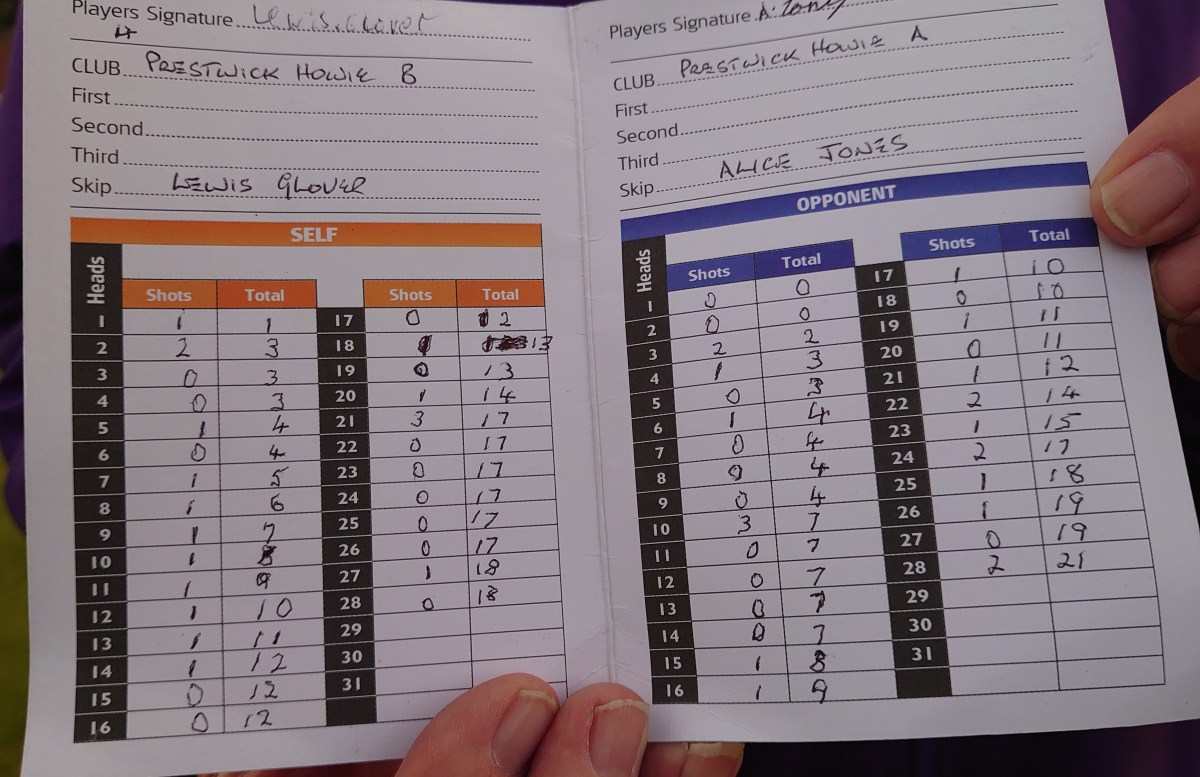 Players Signature Lewis.Glover
4
CLUB PRESTWICK HOWIE B
First
Second
Third
Skip LEWIS GLOVER
SELF
Heads Shots Total Shots Total
1 1 1 17 0 12
2 2 3 18 13
3 0 3 19 0 13
4 0 3 20 1 14
5 1 4 21 3 17
6 0 4 22 0 17
7 1 5 23 0 17
8 1 6 24 0 17
9 1 7 25 0 17
10 1 8 26 0 17
11 1 9 27 1 18
12 1 10 28 0 18
13 1 11 29
14 1 12 30
15 0 12 31
16 0 12
Players Signature A.
CLUB PRESTWICK HOWIE A
First
Second
Third
Skip ALICE JONES
OPPONENT
Heads Shots Total Shots Total
1 0 0 17 1 10
2 0 0 18 0 10
3 2 2 19 1 11
4 1 3 20 0 11
5 0 3 21 1 12
6 1 4 22 2 14
7 0 4 23 1 15
8 0 4 24 2 17
9 0 4 25 1 18
10 3 7 26 1 19
11 0 7 27 0 19
12 0 7 28 2 21
13 0 7 29
14 0 7 30
15 1 8 31
16 1 9